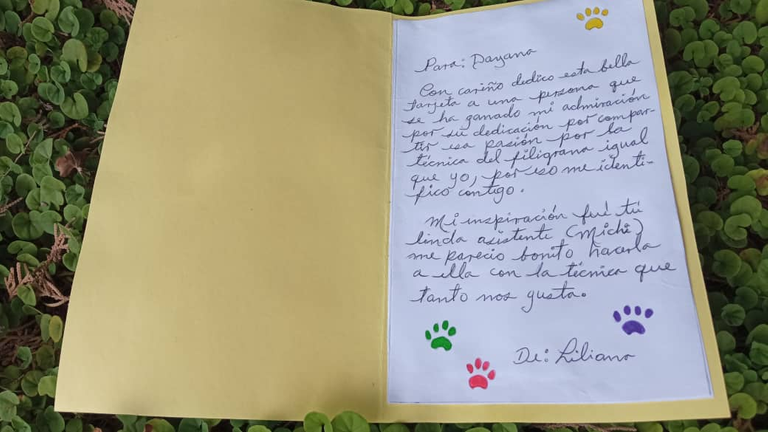 Para: Dayana
Con cariño dedico esta bella
tarjeta a una persona que
se ha ganado mi admiración
por su dedicación por compar-
tir esa pasión por la
técnica del filigrana igual
que yo, por eso me identi-
fico contigo.
Mi inspiración fué tú
linda asistente (Michi)
me parecio bonito hacerla
a ella con la técnica que
tanto nos gusta.
De: Liliana